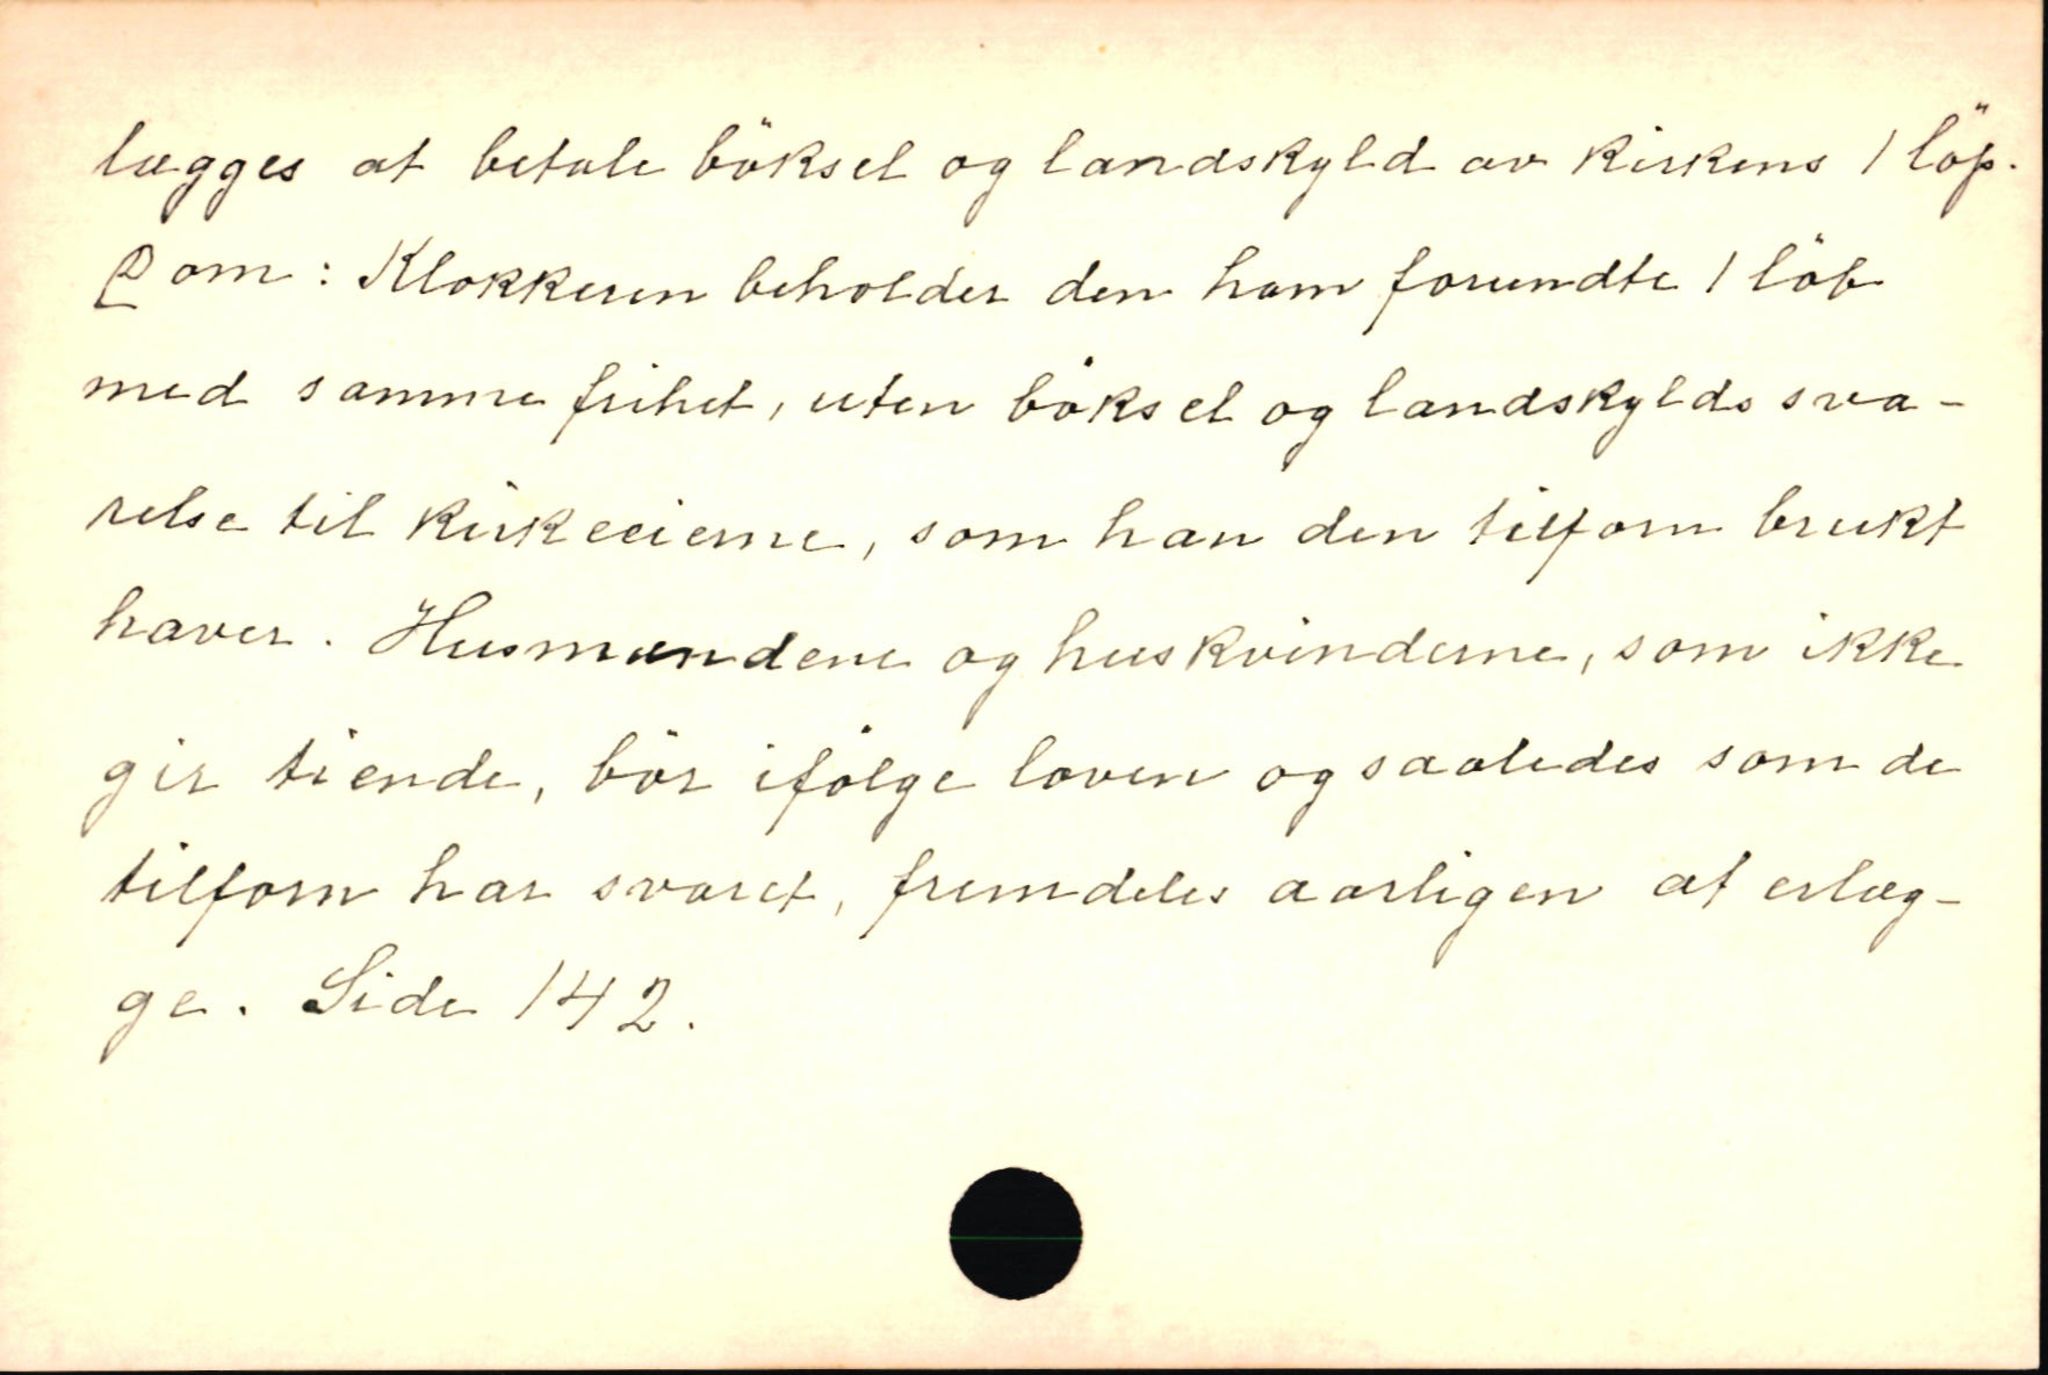 lægges at betale böksel og landskyld av kirkens 1 löp.
Dom: Klokkeren beholder den ham forundte 1 löb
med samme frihet, uten böksel og landskylds sva-
relse til kirkeeierne, som han den tilforn brukt
haver. Husmændene og huskvinderne, som ikke
gir tiende, bör ifölge loven og saaledes som de
tilforn har svaret, fremdeles aarligen at erlæg-
ge. Side 142.